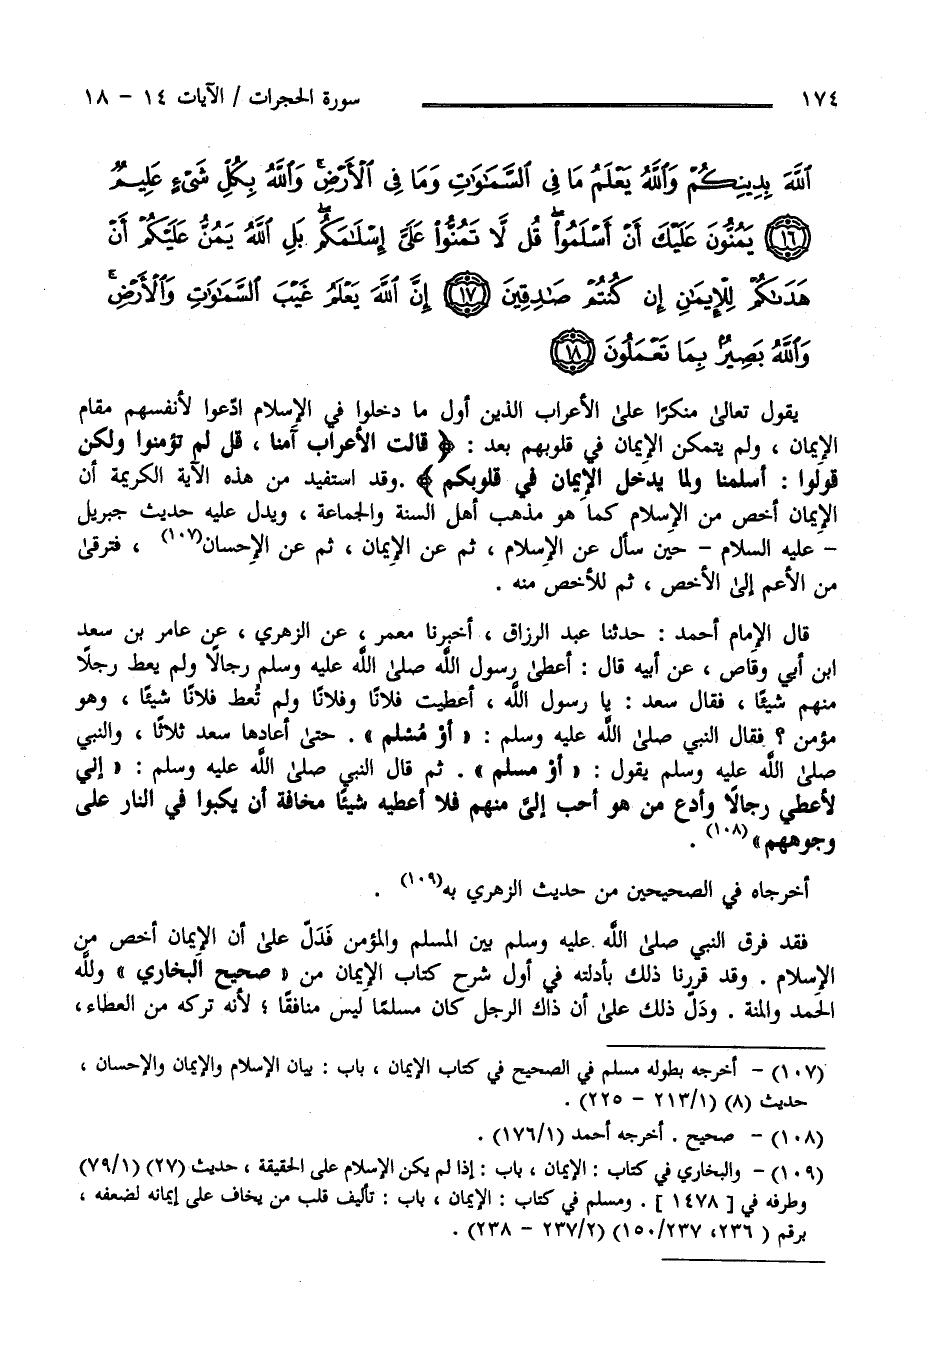 ١٧٤ سورة الحجرات / الآيات ١٤ - ١٨
ٱللَّهَ بِدِينِكُمْ وَٱللَّهُ يَعْلَمُ مَا فِى ٱلسَّمَٰوَٰتِ وَمَا فِى ٱلْأَرْضِ ۚ وَٱللَّهُ بِكُلِّ شَىْءٍ عَلِيمٌ
﴿١٦﴾ يَمُنُّونَ عَلَيْكَ أَنْ أَسْلَمُوا۟ ۖ قُل لَّا تَمُنُّوا۟ عَلَىَّ إِسْلَٰمَكُم ۖ بَلِ ٱللَّهُ يَمُنُّ عَلَيْكُمْ أَنْ
هَدَىٰكُمْ لِلْإِيمَٰنِ إِن كُنتُمْ صَٰدِقِينَ ﴿١٧﴾ إِنَّ ٱللَّهَ يَعْلَمُ غَيْبَ ٱلسَّمَٰوَٰتِ وَٱلْأَرْضِ ۚ
وَٱللَّهُ بَصِيرٌۢ بِمَا تَعْمَلُونَ ﴿١٨﴾
يقول تعالىٰ منكرًا علىٰ الأعراب الذين أول ما دخلوا في الإسلام ادّعوا لأنفسهم مقام
الإيمان ، ولم يتمكن الإيمان في قلوبهم بعد : ﴿ قالت الأعراب آمنا ، قل لم تؤمنوا ولكن
قولوا : أسلمنا ولما يدخل الإيمان في قلوبكم ﴾ .وقد استفيد من هذه الآية الكريمة أن
الإيمان أخص من الإسلام كما هو مذهب أهل السنة والجماعة ، ويدل عليه حديث جبريل
- عليه السلام - حين سأل عن الإسلام ، ثم عن الإيمان ، ثم عن الإحسان(١٠٧) ، فترقىٰ
من الأعم إلىٰ الأخص ، ثم للأخص منه .
قال الإمام أحمد : حدثنا عبد الرزاق ، أخبرنا معمر ، عن الزهري ، عن عامر بن سعد
ابن أبي وقاص ، عن أبيه قال : أعطىٰ رسول اللَّه صلىٰ اللَّه عليه وسلم رجالًا ولم يعط رجلًا
منهم شيئًا ، فقال سعد : يا رسول اللَّه ، أعطيت فلانًا وفلانًا ولم تُعط فلانًا شيئًا ، وهو
مؤمن ؟ فقال النبي صلىٰ اللَّه عليه وسلم : « أوْ مُسْلم » . حتىٰ أعادها سعد ثلاثًا ، والنبي
صلىٰ اللَّه عليه وسلم يقول : « أوْ مسلم » . ثم قال النبي صلىٰ اللَّه عليه وسلم : « إني
لأعطي رجالًا وأدع من هو أحب إليَّ منهم فلا أعطيه شيئًا مخافة أن يكبوا في النار على
وجوههم»(١٠٨) .
أخرجاه في الصحيحين من حديث الزهري به(١٠٩) .
فقد فرق النبي صلىٰ اللَّه عليه وسلم بين المسلم والمؤمن فَدَلّ علىٰ أن الإيمان أخص من
الإسلام . وقد قررنا ذلك بأدلته في أول شرح كتاب الإيمان من « صحيح البخاري » وللَّه
الحمد والمنة . ودَلّ ذلك علىٰ أن ذاك الرجل كان مسلمًا ليس منافقًا ؛ لأنه تركه من العطاء،
(١٠٧) - أخرجه بطوله مسلم في الصحيح في كتاب الإيمان ، باب : بيان الإسلام والإيمان والإحسان ،
حديث (٨) (٢١٣/١ - ٢٢٥) .
(١٠٨) - صحيح . أخرجه أحمد (١٧٦/١) .
(١٠٩) - والبخاري في كتاب : الإيمان ، باب : إذا لم يكن الإسلام على الحقيقة ، حديث (٢٧) (٧٩/١)
وطرفه في [ ١٤٧٨ ] . ومسلم في كتاب : الإيمان ، باب : تأليف قلب من يخاف على إيمانه لضعفه ،
برقم ( ٢٣٦، ١٥٠/٢٣٧) (٢٣٧/٢ - ٢٣٨) .